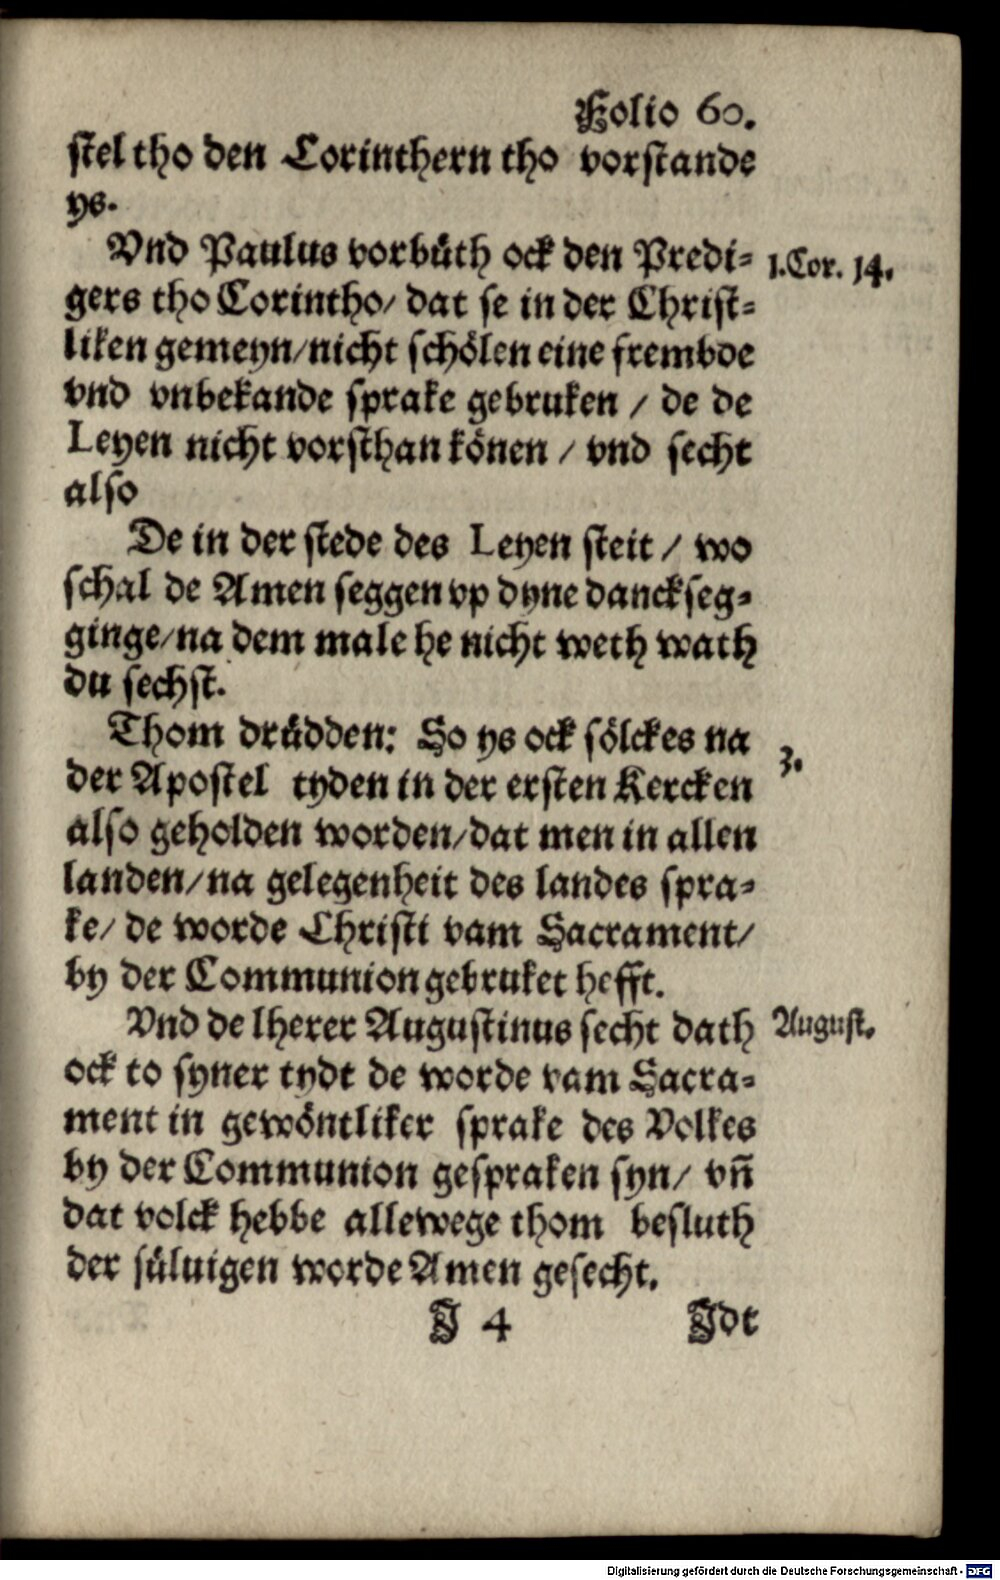 Folio 60.
stel tho den Corinthern tho vorstande
ys.
Vnd Paulus vorbüth ock den Predi-
1. Cor. 14.
gers tho Corintho/ dat se in der Christ-
liken gemeyn/nicht schölen eine frembde
vnd vnbekande sprake gebruken / de de
Leyen nicht vorsthan könen / vnd secht
also
De in der stede des Leyen steit / wo
schal de Amen seggen vp dyne danckseg-
ginge/na dem male he nicht weth wath
du sechst.
Thom drüdden: So ys ock sölckes na
3.
der Apostel tyden in der ersten Kercken
also geholden worden/dat men in allen
landen/na gelegenheit des landes spra-
ke/ de worde Christi vam Sacrament/
by der Communion gebruket hefft.
Vnd de lherer Augustinus secht dath
August.
ock to syner tydt de worde vam Sacra-
ment in gewöntliker sprake des Volkes
by der Communion gespraken syn/ vñ
dat volck hebbe allewege thom besluth
der süluigen worde Amen gesecht.
J 4 Jdt
Digitalisierung gefördert durch die Deutsche Forschungsgemeinschaft - DFG